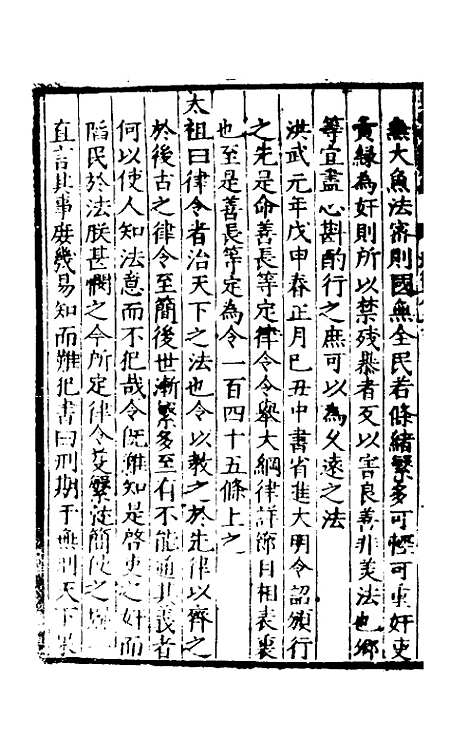 無大魚法密則國無全民若條緒繁多可輕可重奸吏
夤緣為奸則所以禁殘暴者反以害良善非美法也卿
等宜盡心斟酌行之庶可以為久遠之法
洪武元年戊申春正月己丑中書省進大明令詔頒行
之先是命善長等定律令令舉大綱律詳節目相表裏
也至是善長等定為令一百四十五條上之
太祖曰律令者治天下之法也令以教之於先律以齊之
於後古之律令至簡後世漸繁多至有不能通其義者
何以使人知法意而不犯哉令既難知是啓吏之奸而
陷民於法朕甚憫之今所定律令芟繁從簡使之
直言其事庶幾易知而難犯書曰刑期于無刑天下果